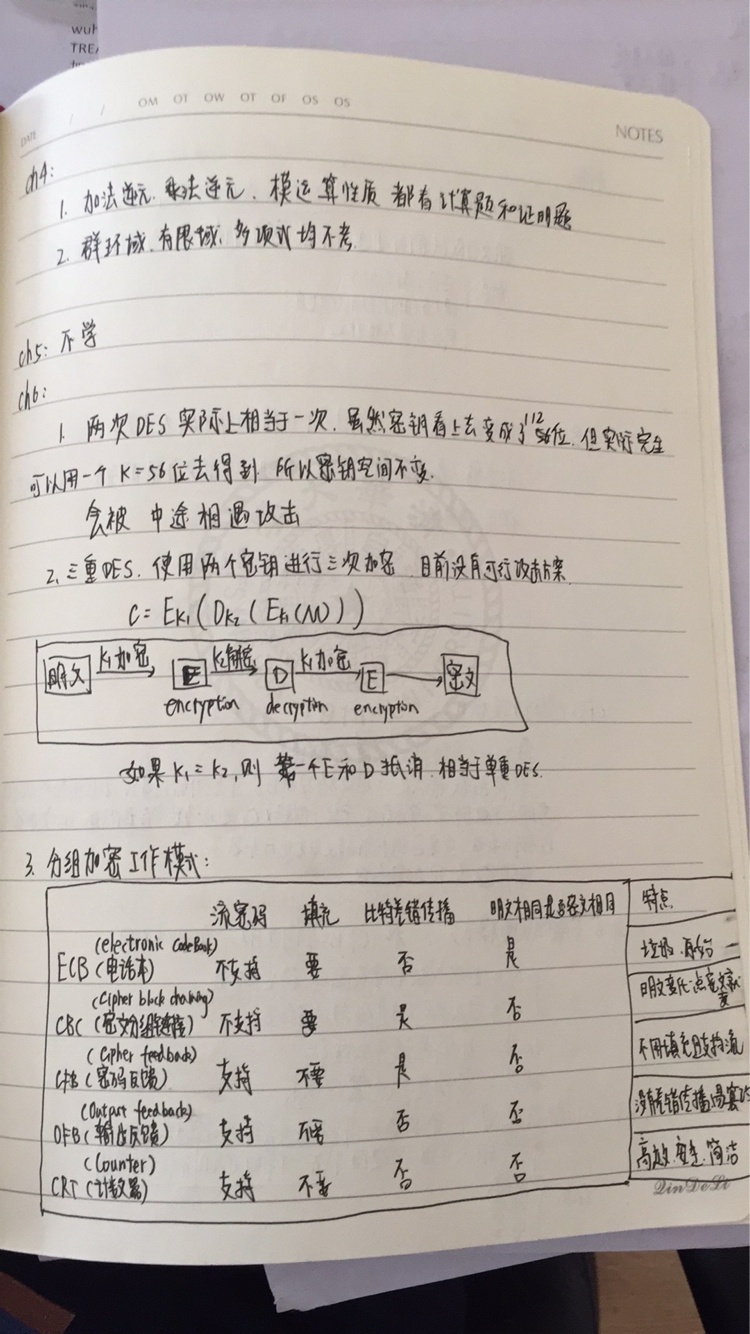 wuh
TREA
DATE / / OM OT OW OT OF OS OS
NOTES
ch4:
1. 加法逆元、乘法逆元、模运算性质 都有计算题和证明题
2. 群环域、有限域、多项式均不考
ch5: 不学
ch6:
1. 两次DES 实际上相当于一次, 虽然密钥看上去变成了112位, 但实际完全
可以用一个 K=56位去得到 所以密钥空间不变.
会被 中途相遇攻击
2. 三重DES, 使用两个密钥进行三次加密 目前没有可行攻击方案
C = EK1(DK2(EK1(M)))
明文 K1加密 E K2解密 D K1加密 E 密文
encryption decryption encryption
如果 K1=K2, 则 第一个E和D抵消, 相当于单重DES.
3. 分组加密工作模式:
流密码 填充 比特差错传播 明文相同是否密文相同 特点
(electronic CodeBook)
ECB (电话本) 不支持 要 否 是
(Cipher block chaining)
CBC (密文分组链接) 不支持 要 是 否 明文变化一点密文就变
(Cipher feedback)
CFB (密码反馈) 支持 不要 是 否 不用填充且支持流
(Output feedback)
OFB (输出反馈) 支持 不要 否 否 没有差错传播
(Counter)
CRT (计数器) 支持 不要 否 否 高效.安全.简洁
QinDeLi